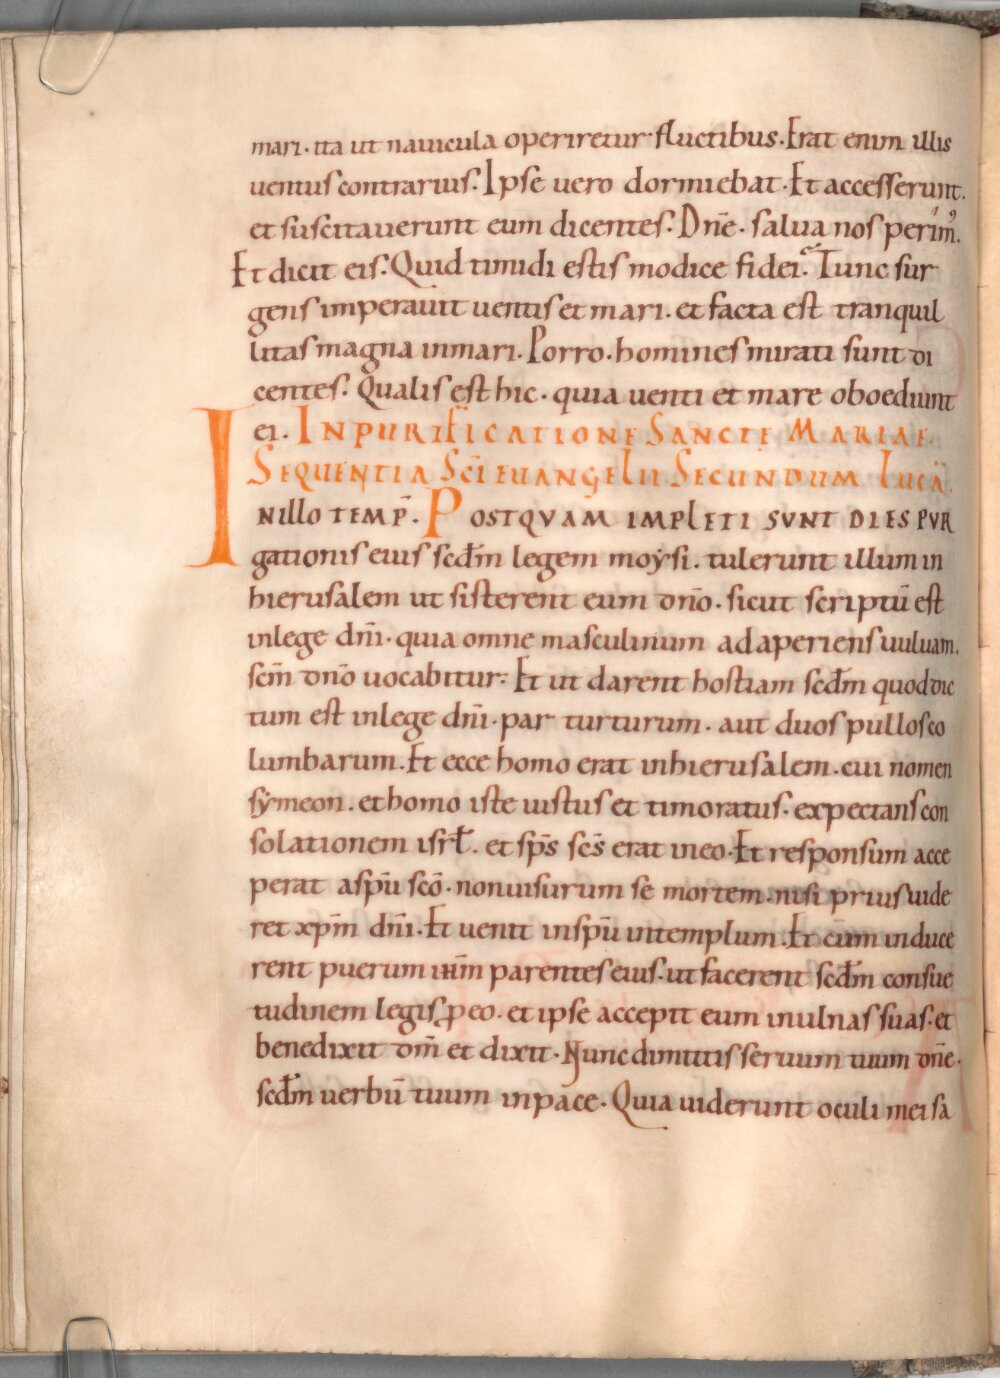 mari. ita ut nauicula operiretur fluctibus. Erat enim illis
uentus contrarius. Ipse uero dormiebat. Et accesserunt.
et suscitauerunt eum dicentes. Dñe. salua nos perim᷒.
Et dicit eis. Quid timidi estis modice fidei. Tunc sur
gens imperauit uentis et mari. et facta est tranquil
litas magna inmari. Porro. homines mirati sunt di
centes. Qualis est hic. quia uenti et mare oboediunt
ei. IN PURIFICATIONE SANCTE MARIAE.
SEQUENTIA SCĪ EUANGELII SECUNDUM LUCĀ.
INillo TEMP̄. POSTQVAM IMPLETI SVNT DIES PVR
gationis eius scđm legem moẏsi. tulerunt illum in
hierusalem ut sisterent eum dño. sicut scriptū est
inlege dñi. quia omne masculinum adaperiens uuluam.
scm̄ dño uocabitur. Et ut darent hostiam scđm quod dic
tum est inlege dñi. par turturum. aut duos pullos co
lumbarum. Et ecce homo erat inhierusalem. cui nomen
sẏmeon. et homo iste uistus et timoratus. expectans con
solationem isrł. et sps̄ scs̄ erat ineo. Et responsum acce
perat aspū scō. nonuisurum se mortem. nisi prius uide
ret xpm̄ dñi. Et uenit inspū intemplum. Et cum induce
rent puerum ihm̄ parentes eius. ut facerent scđm consue
tudinem legis ꝓeo. et ipse accepit eum inulnas suas. et
benedixit dm̄ et dixit. Nunc dimittis seruum tuum dñe.
scđm uerbū tuum inpace. Quia uiderunt oculi mei sa